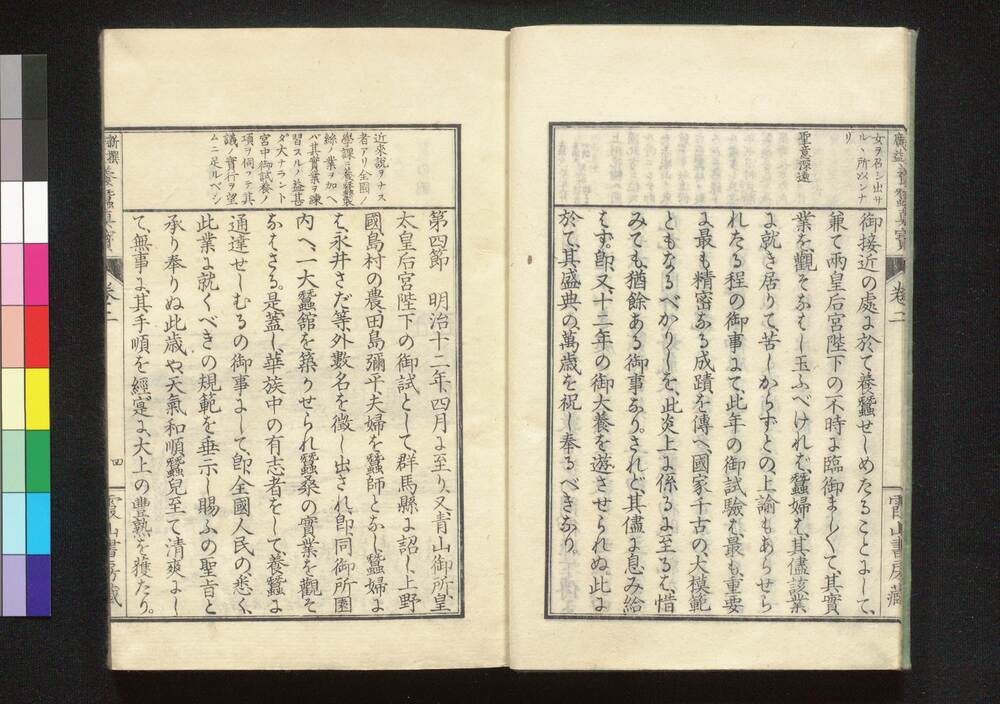 女ヲ召シ出サ
ルヽ所以ンナ
リ
聖意深遠
御接近の處よ於て養蠶せしめたることよして、
兼て兩皇后宮陛下の不時よ臨御ましくて、其實
業を觀そなはし玉ふべければ、蠶婦は其儘該業
よ就き居りて、苦しからずとの、上諭もあらせら
れたる程の御事よて、此年の御試驗は、最も重要
よ最も精密なる成蹟を傳へ、國家千古の、大模範
ともなるべかりしを、此炎上よ係るよ至るは、惜
みても、猶餘ある御事なり。されど、其儘よ息み給
はず。即又、十二年の御大養を遊させられぬ。此よ
於て、其盛典の萬歳を祝し奉るべきなり。
霞山書房藏
近來說ヲナス
者アリ全國ノ
學課ニ養蠶製
絲ノ業ヲ加ヘ
バ其實業ヲ練
習スルノ益甚
ダ大ナラント
宮中御試養ノ
項ヲ伺ツテ其
議ノ實行ヲ望
ムニ足ルベシ
第四節　明治十二年、四月よ至り、又青山御所、皇
太皇后宮陛下の御試として、群馬縣よ詔し、上野
國島村の農、田島彌平、夫婦を蠶師となし、蠶婦よ
は、永井さだ等、外數名を徴し出され、即、同御所園
内へ、一大蠶舘を築かせられ、蠶桑の實業を觀そ
なはさる。是蓋し、華族中の有志者をして、養蠶よ
通達せしむるの御事よして、即、全國人民の悉く、
此業よ就くべきの規範を垂示し賜ふの聖旨と
承り奉りぬ此歳や、天氣和順、蠶兒至て清爽よし
て、無事よ、其手順を經、寔よ、大上の豐熟を獲たり。
新撰養蠶眞寶　卷二　四　霞山書房藏